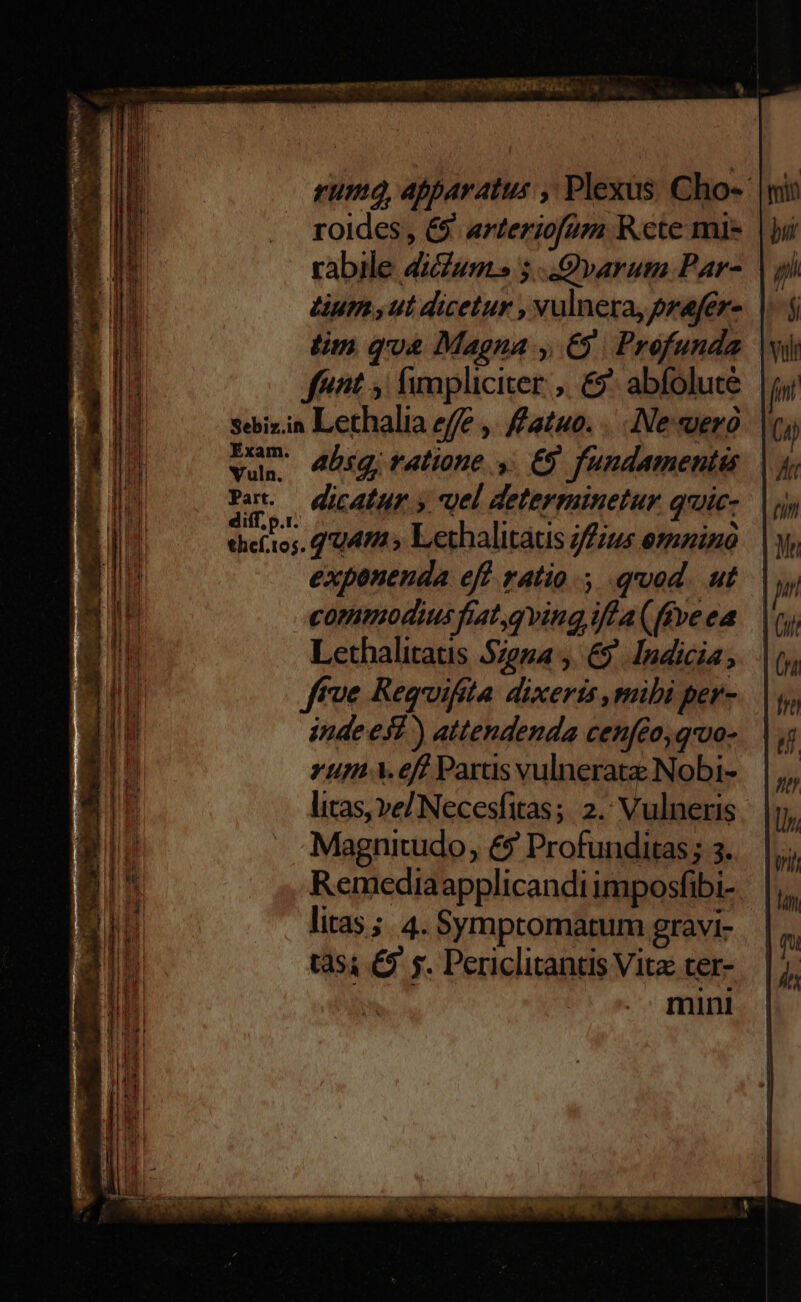 rumq́, apparatus, Plexus Cho-
roides, & arteriosum Rete mi-
rabile dictum; Qvarum Par-
tium, ut dicetur, vulnera, præser-
tim qvæ Magna, & Profunda
ſunt, ſimpliciter, & abſolutè
Sebiz.in Lethalia eſſe, ſtatuo. Ne verò
Exam. Vuln. absq; ratione, & fundamentis
Part. dicatur, vel determinetur qvic-
diff.p.1. theſ.105. qvam, Lethalitatis iſtius omninò
exponenda eſt ratio; qvod ut
commodius fiat, qvinq; iſta (ſive ea
Lethalitatis Signa, & Indicia,
ſive Reqviſita dixeris, mihi per-
inde eſt) attendenda cenſeo, qvo-
rum 1. eſt Partis vulneratæ Nobi-
litas, vel Necesſitas; 2. Vulneris
Magnitudo, & Profunditas; 3.
Remedia applicandi imposſibi-
litas; 4. Symptomatum gravi-
tas; & 5. Periclitantis Vitæ ter-
mini